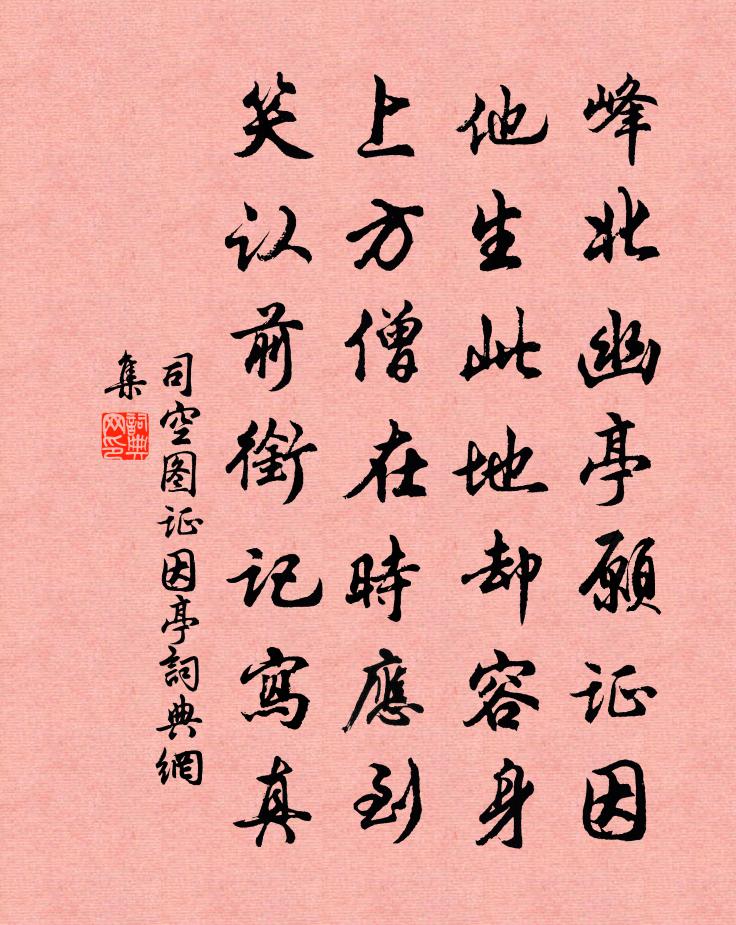 峰北幽亭願证因
他生此地却容身
上方僧在時應到
笑认前銜记寫真
司空图证因亭詞典網
集
詞典网印